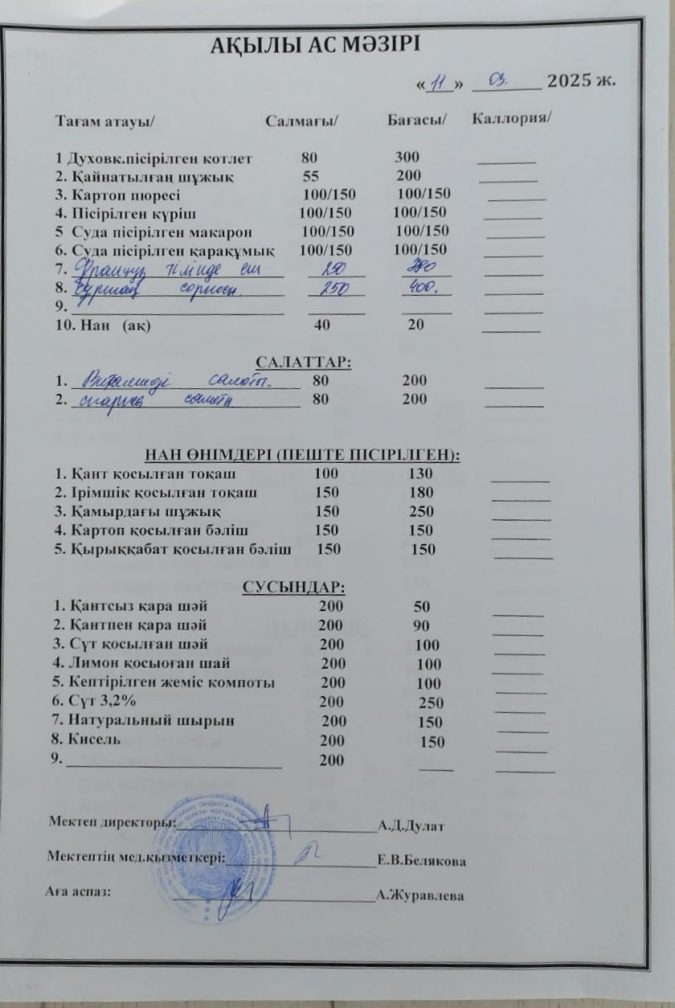 АҚЫЛЫ АС МӘЗІРІ
«11» 03. 2025 ж.
Тағам атауы/ Салмағы/ Бағасы/ Каллория/
1 Духовк.пісірілген котлет 80 300
2. Қайнатылған шұжық 55 200
3. Картоп пюресі 100/150 100/150
4. Пісірілген күріш 100/150 100/150
5 Суда пісірілген макарон 100/150 100/150
6. Суда пісірілген қарақұмық 100/150 100/150
7. Француз тілінде ет 250
8. бұршақ сорпасы. 250 400.
9.
10. Нан (ақ) 40 20
САЛАТТАР:
1. салаты. 80 200
2. салаты 80 200
НАН ӨНІМДЕРІ (ПЕШТЕ ПІСІРІЛГЕН):
1. Қант қосылған тоқаш 100 130
2. Ірімшік қосылған тоқаш 150 180
3. Қамырдағы шұжық 150 250
4. Картоп қосылған бәліш 150 150
5. Қырыққабат қосылған бәліш 150 150
СУСЫНДАР:
1. Қантсыз қара шәй 200 50
2. Қантпен қара шәй 200 90
3. Сүт қосылған шәй 200 100
4. Лимон қосыоған шай 200 100
5. Кептірілген жеміс компоты 200 100
6. Сүт 3,2% 200 250
7. Натуральный шырын 200 150
8. Кисель 200 150
9. 200
Мектеп директоры: А.Д.Дулат
Мектептің мед.қызметкері: Е.В.Белякова
Аға аспаз: А.Журавлева